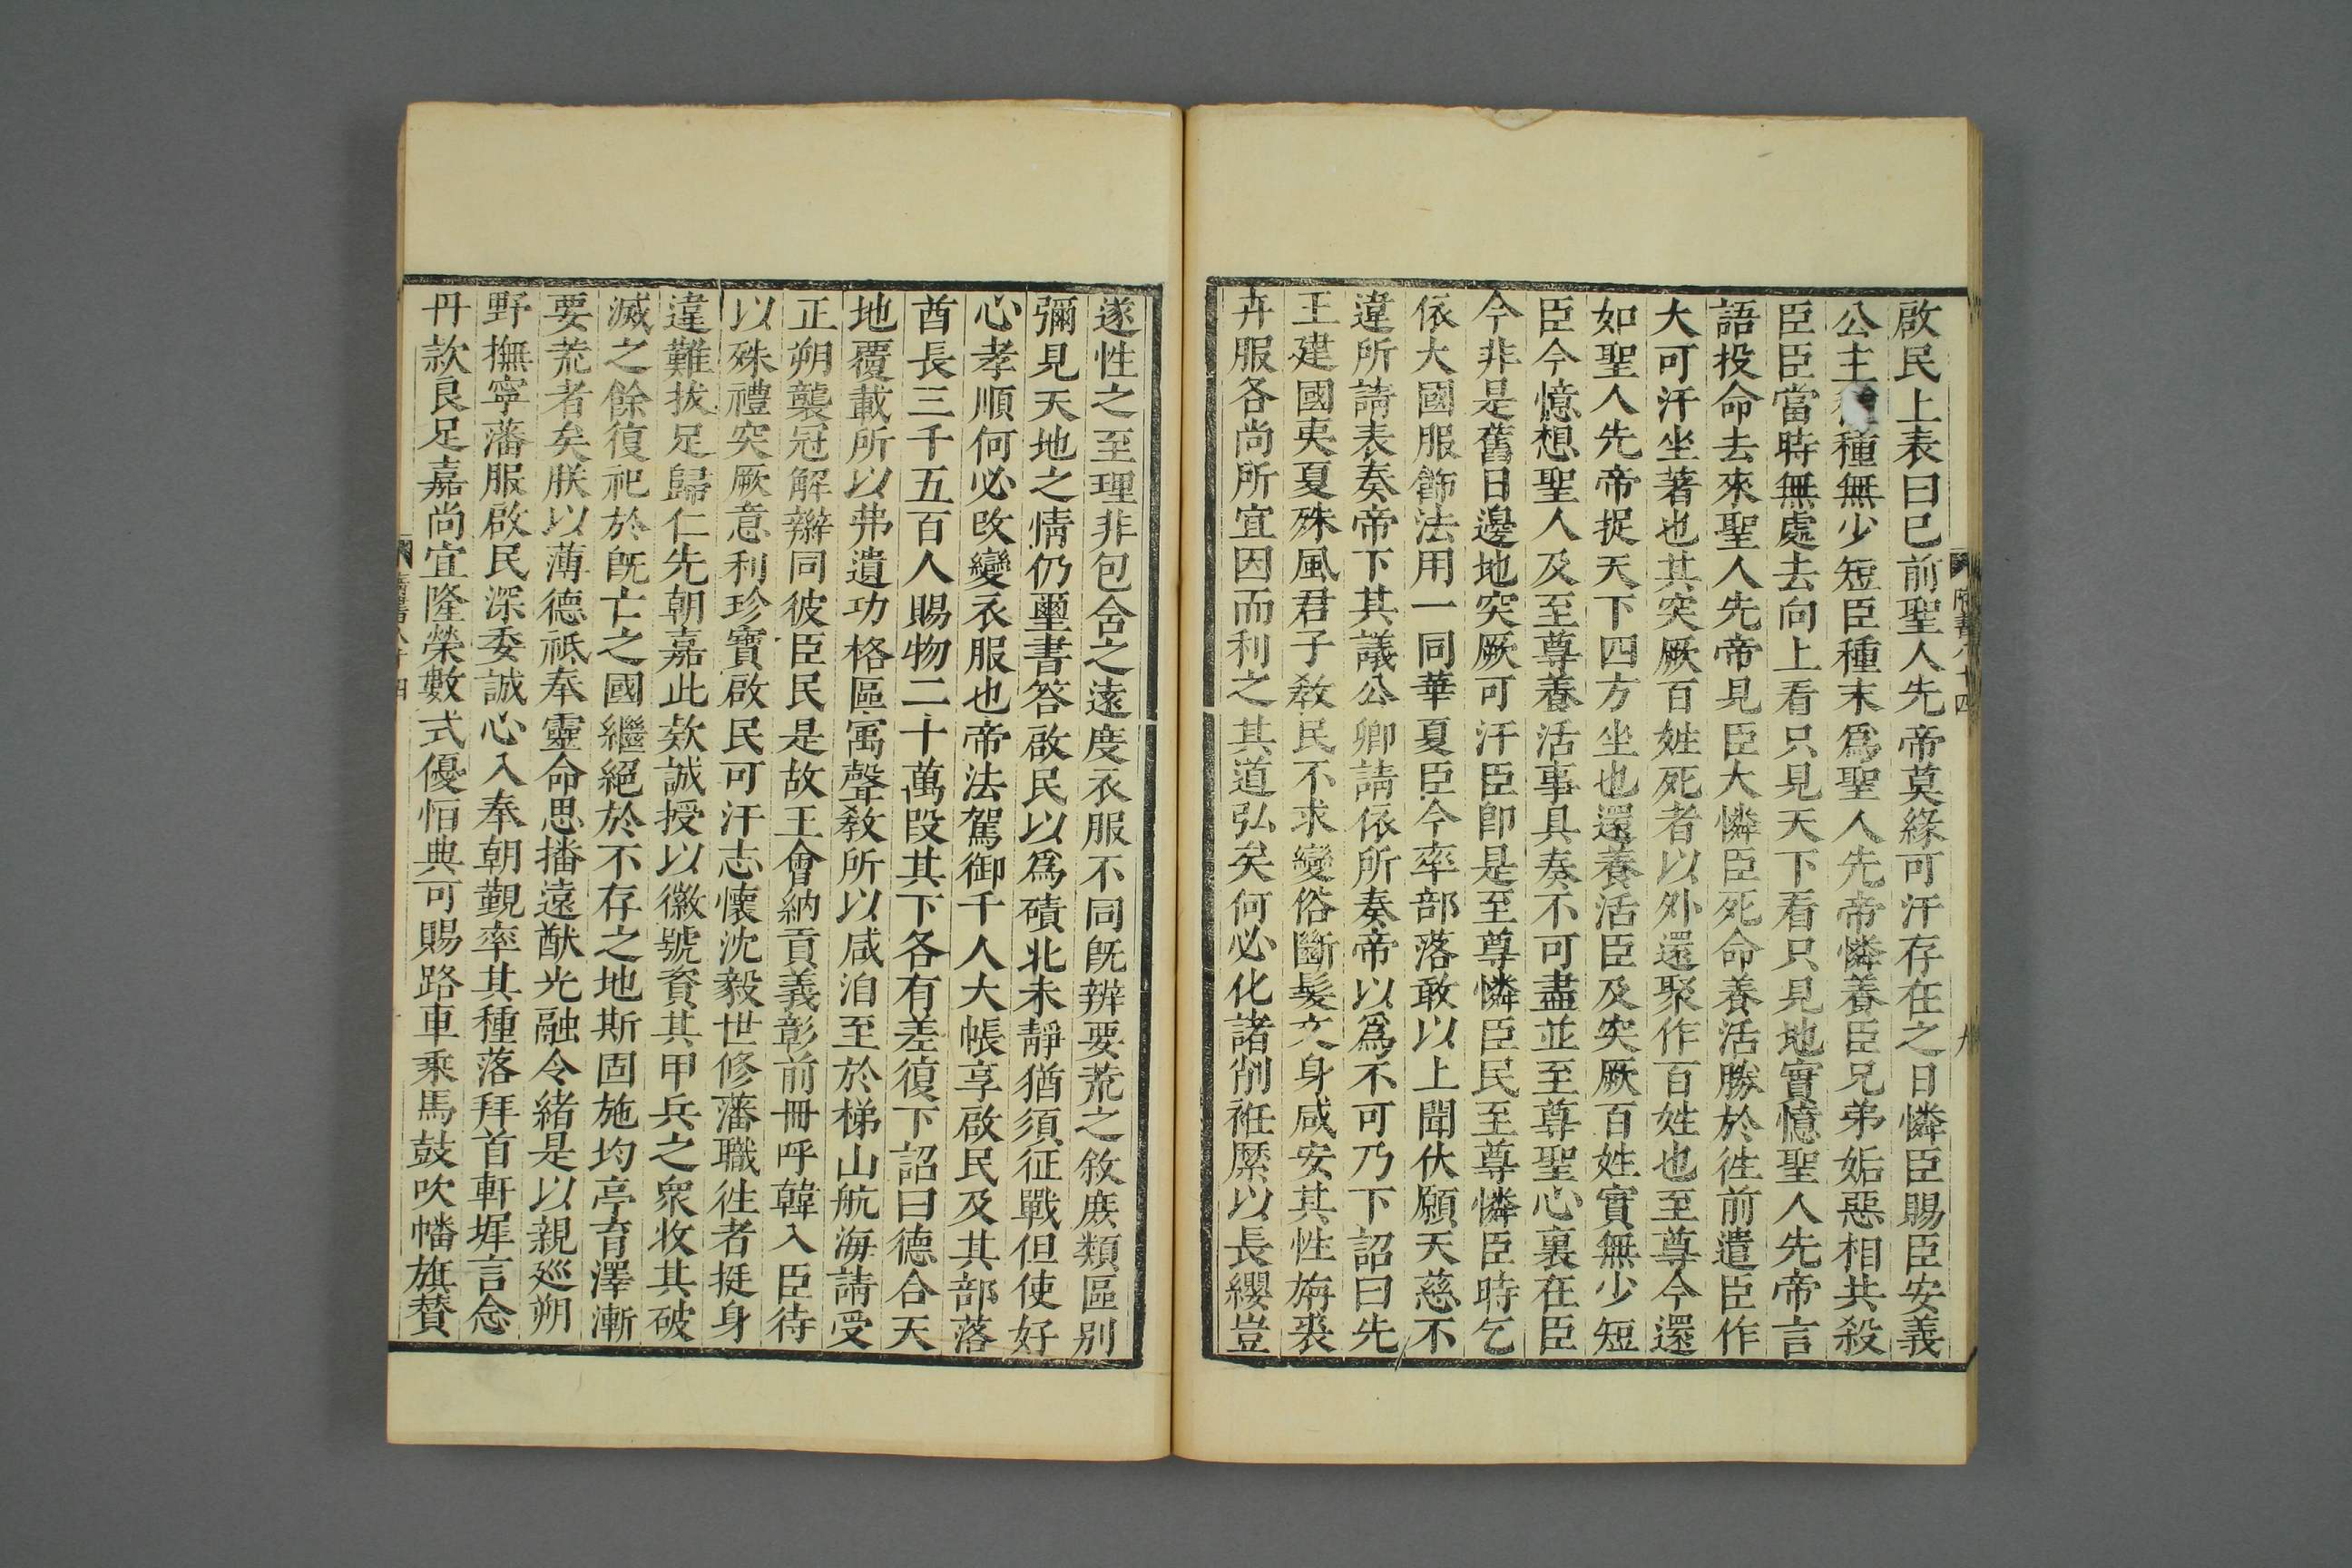 啟民上表曰已前聖人先帝莫緣可汗存在之日憐臣賜臣安義
公主種種無少短臣種末爲聖人先帝憐養臣兄弟姤惡相共殺
臣臣當時無處去向上看只見天下看只見地實憶聖人先帝言
語投命去來聖人先帝見臣大憐臣死命養活勝於徃前遣臣作
大可汗坐著也其突厥百姓死者以外還聚作百姓也至尊今還
如聖人先帝捉天下四方坐也還養活臣及突厥百姓實無少短
臣今憶想聖人及至尊養活事具奏不可盡並至尊聖心裏在臣
今非是舊日邊地突厥可汗臣即是至尊憐臣民至尊憐臣時乞
依大國服飾法用一同華夏臣今率部落敢以上聞伏願天慈不
違所請表奏帝下其議公卿請依所奏帝以爲不可乃下詔曰先
王建國夷夏殊風君子敎民不求變俗斷髮文身咸安其性旃裘
卉服各尚所宜因而利之其道弘矣何必化諸削袵縻以長纓豈
隋書八十四
九
遂性之至理非包含之遠度衣服不同旣辨要荒之敘庻類區别
彌見天地之情仍璽書答啟民以爲磧北未靜猶須征戰但使好
心孝順何必改變衣服也帝法駕御千人大帳享啟民及其部落
酋長三千五百人賜物二十萬段其下各有差復下詔曰德合天
地覆載所以弗遺功格區㝢聲敎所以咸洎至於梯山航海請受
正朔襲冠解辮同彼臣民是故王會納貢義彰前冊呼韓入臣待
以殊禮突厥意利珍寶啟民可汗志懷沈毅世修藩職徃者挺身
違難拔足歸仁先朝嘉此欵誠授以徽號資其甲兵之衆收其破
滅之餘復祀於旣亡之國繼絕於不存之地斯固施均亭育澤漸
要荒者矣朕以薄德祗奉靈命思播遠猷光融令緒是以親廵朔
野撫寧藩服啟民深委誠心入奉朝覲率其種落拜首軒墀言念
丹款良足嘉尚宜隆榮數式優恒典可賜路車乘馬鼓吹幡旗贊
隋書八十四